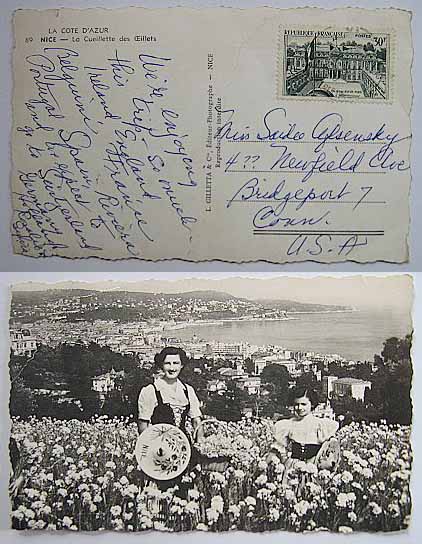 LA COTE D'AZUR
89 NICE — La Cueillette des Œillets
We're enjoying
this trip - so much -
Ireland, England
Belgium, France
Portugal Spain, Riviera
so expect to
go to Switzerland
Germany
L. GILLETTA & Cie, Éditeur-Photographe - NICE
Reproduction interdite
RÉPUBLIQUE FRANÇAISE
POSTES
30F
Miss Sadee
4?? Newfield Ave
Bridgeport 7
Conn.
U.S.A